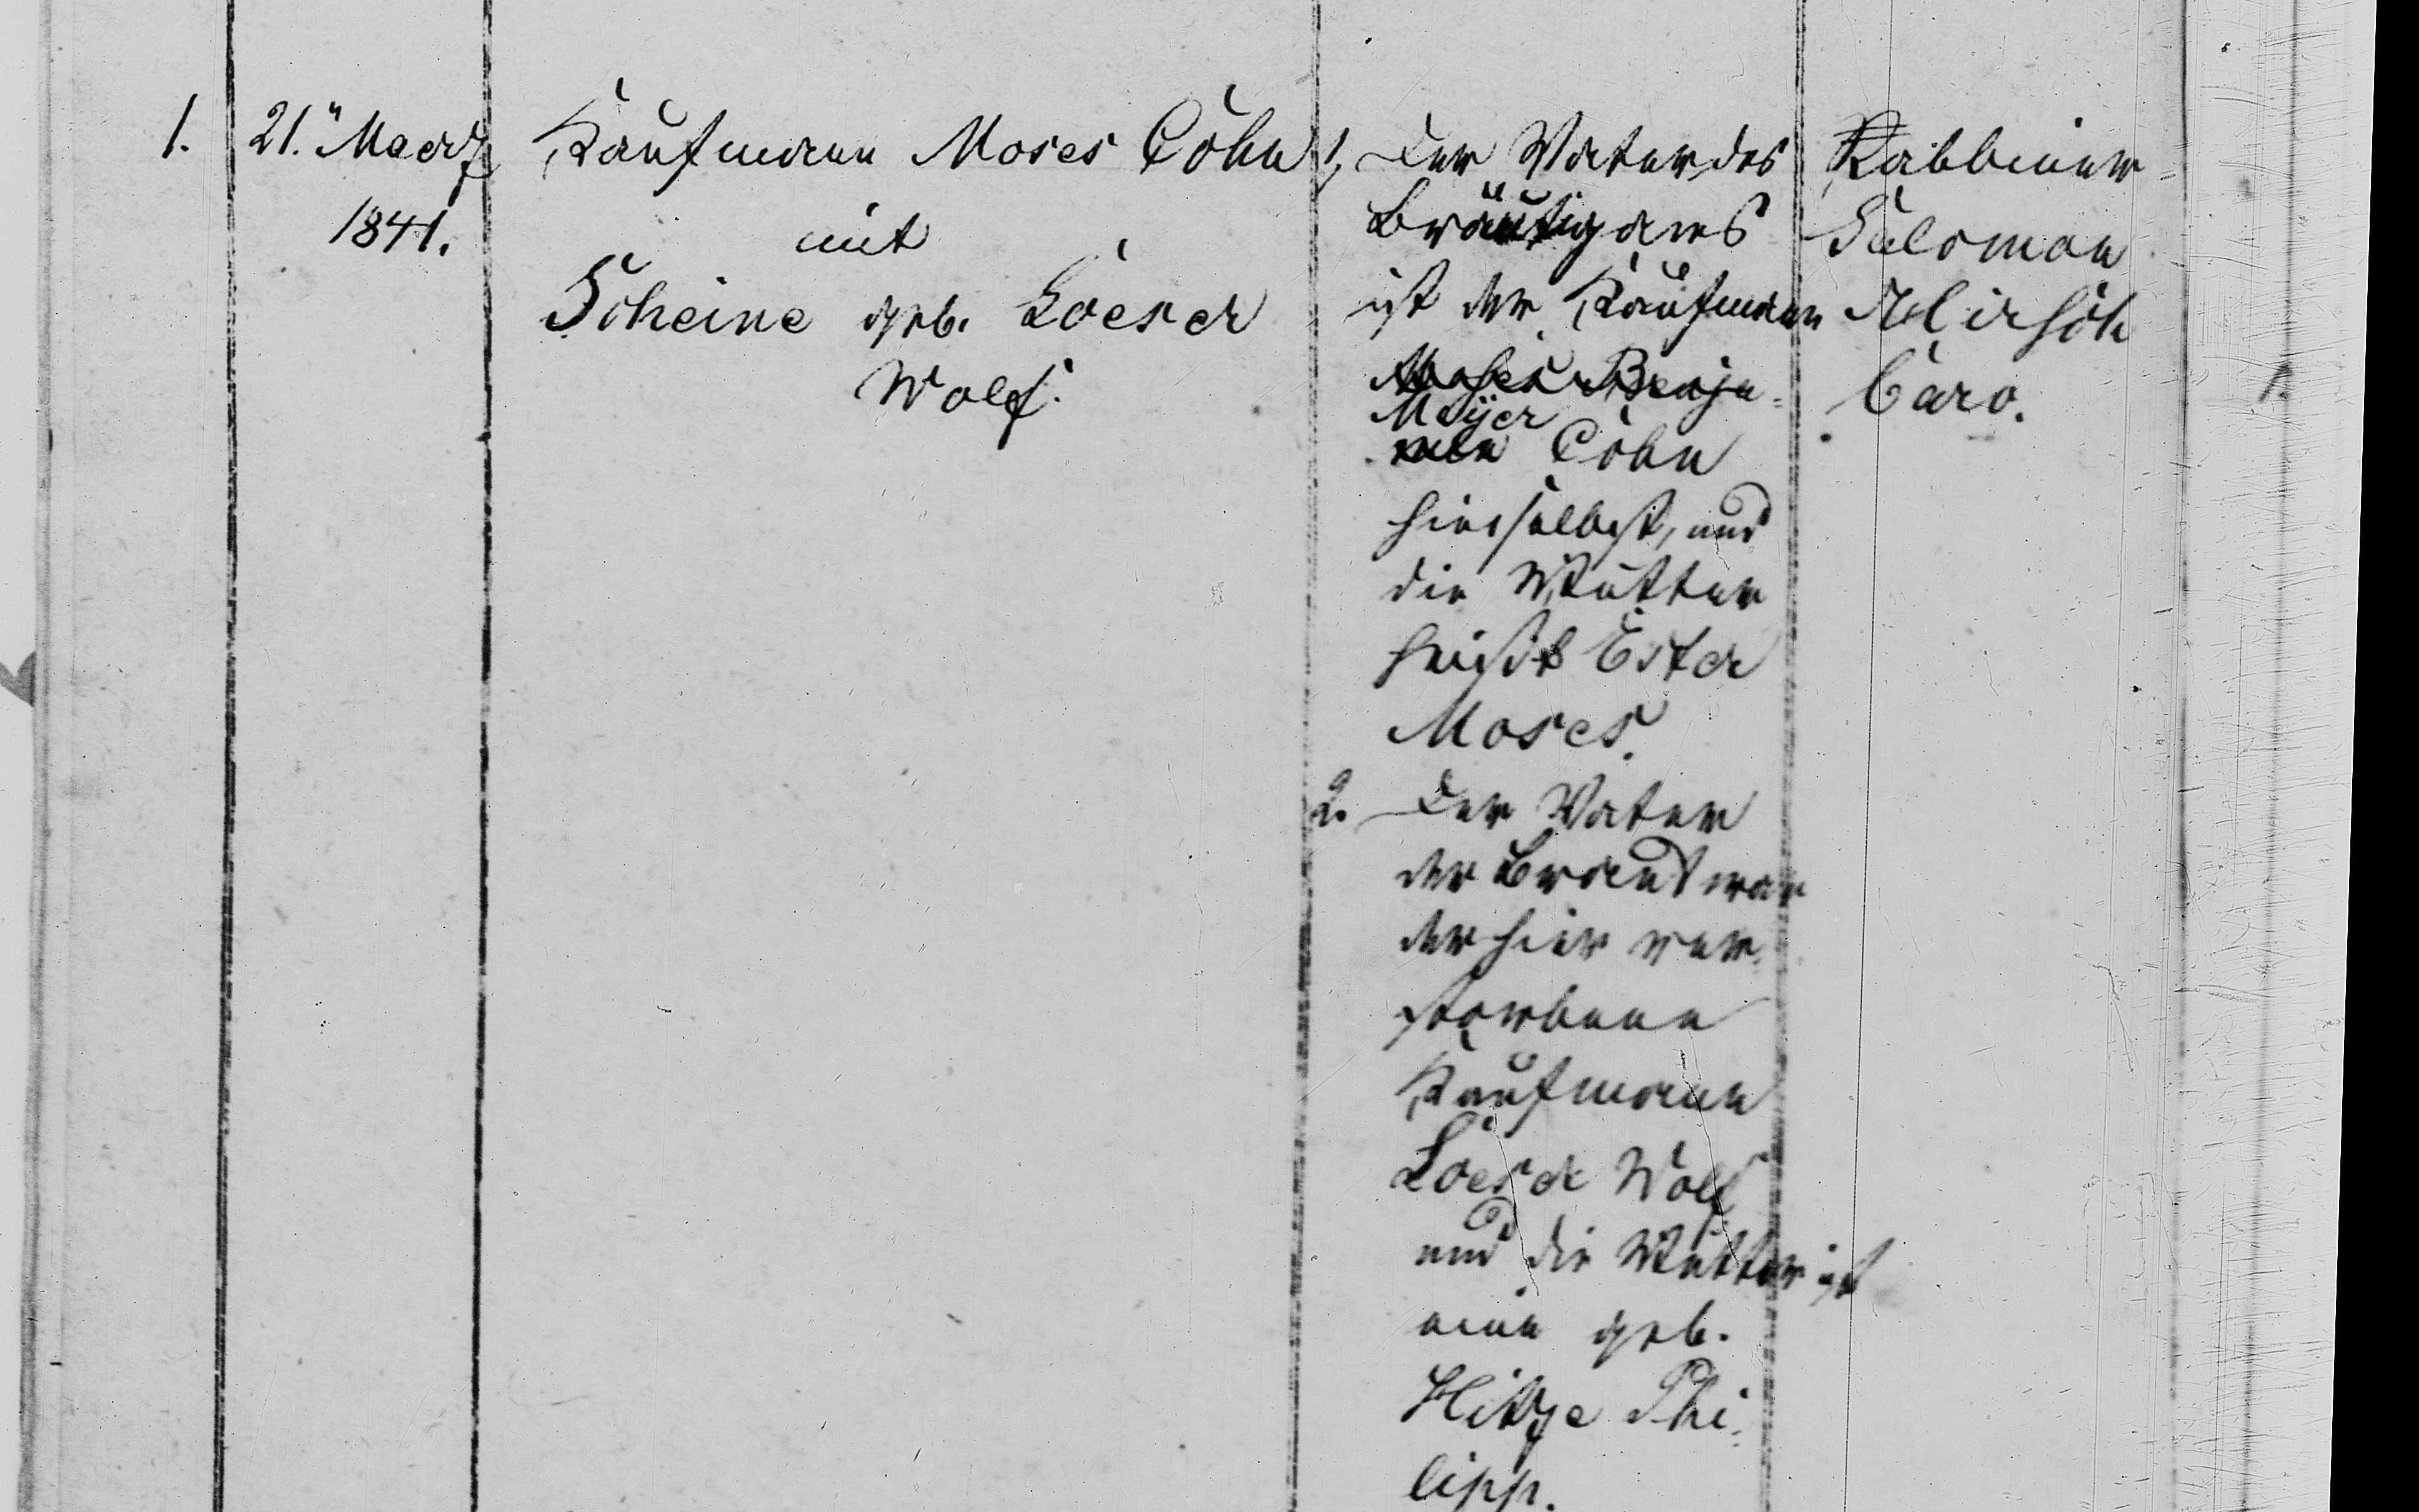 1.
21. Maerz
1841.
Kaufmann Moses Cohn
mit
Scheine geb. Loeser
Wolf.
1, Der Vater des
Bräutigams
ist der Kaufmann
Moses Benja-
Meÿer
min Cohn
hierselbst, und
die Mutter
heißt Ester
Moses.
2. Der Vater
der Braut war
der hier ver-
storbene
Kaufmann
Loeser Wolf
und die Mutter ist
eine geb.
Hitze Phi-
lipp.
Rabbiner
Salomon
Hirsch
Caro.
1.